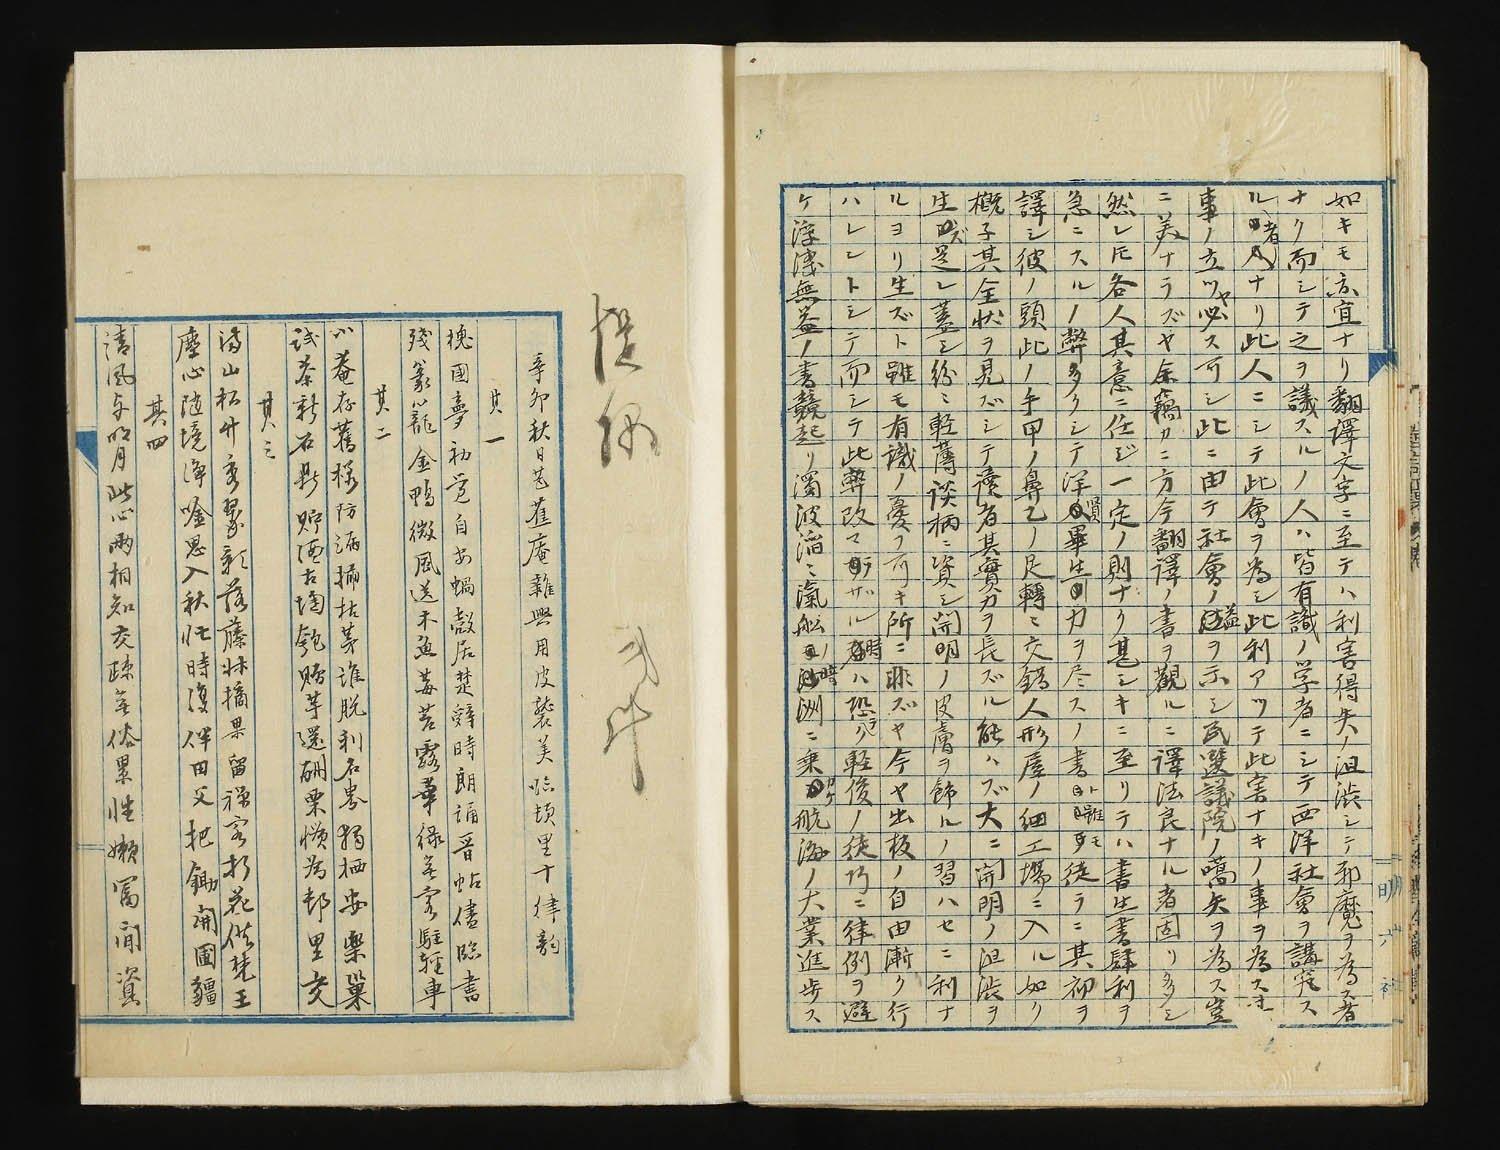 如キモ亦宜ナリ翻譯文字ニ至テハ利害得失ノ沮渋シテ邪魔ヲ為ス者
ナク而シテ之ヲ議スルノ人ハ皆有識ノ学者ニシテ西洋社會ヲ講究ス
ル者ナリ此人ニシテ此會ヲ為シ此利アツテ此害ナキノ事ヲ為ス
事ノ立ツヤ必ス可シ此ニ由テ社會ノ益ヲ示シ民選議院ノ嚆矢ヲ為ス豈
ニ美ナラズヤ余竊カニ方今翻譯ノ書ヲ觀ルニ譯法良ナル者固リ多シ
然レ𪜈各人其意ニ任ジ一定ノ則ナク甚シキニ至リテハ書生書肆利ヲ
急ニスルノ弊多クシテ洋人畢生ノ力ヲ尽スノ書ト雖モ徒ラニ其初ヲ
譯シ彼ノ頭此ノ手甲ノ鼻乙ノ足轉ミ交錯人形屋ノ細工場ニ入ル如ク
概子其全状ヲ見ズシテ讀者其實力ヲ長ズル能ハズ大ニ開明ノ沮渋ヲ
生ズ是レ蓋シ紛ミ軽薄談柄ニ資シ開明ノ皮膚ヲ飾ルノ習ハセニ利ナ
ルヨリ生ズト雖モ有識ノ憂フ可キ所ニ非ズヤ今ヤ出板ノ自由漸ク行
ハレントシテ而シテ此弊改マラザル時ハ恐ラクハ軽俊ノ徒巧ニ律例ヲ避
ケ浮薄無益ノ書競起リ濁波滔ミ滊舩ノ時洲ニ乗カケ航海ノ大業進歩ス
明六社
辛卯秋日芭蕉庵雜興用皮襲美臨頓里十律韵
其一
槐國夢初覚自安蝸殻居楚辞時朗誦晋帖儘臨書
残篆小龍金鴨微風送木魚莓苔露華緑無客駐軽車
其二
小菴存舊様防漏補枯茅誰脱利名界獨栖安樂巢
試茶新石鼎貯酒古陶匏賜芋還酬栗懶為邨里交
其三
満山松竹秀翠影落藤牀摘果留禅客折花供梵王
塵心随境浄唫思入秋忙時復伴田父把鋤開圃疆
其四
清風与明月此心兩相知交疎無俗累性嬾冨閒資